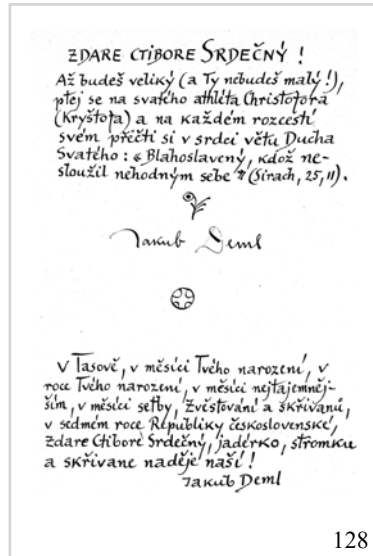 ZDARE CTIBORE SRDEČNÝ !
Až budeš veliký (a Ty nebudeš malý!),
ptej se na svatého athleta Christofora
(Kryštofa) a na každém rozcestí
svém přečti si v srdci větu Ducha
Svatého : « Blahoslavený, kdož ne-
sloužil nehodným sebe » (Sirach, 25, 11).
Jakub Deml
V Tasově, v měsíci Tvého narození, v
roce Tvého narození, v měsíci nejtajemněj-
ším, v měsíci setby, zvěstování a skřivanů,
v sedmém roce Republiky československé,
Zdare Ctibore Srdečný, jadérko, stromku
a skřivane naděje naší!
Jakub Deml
128